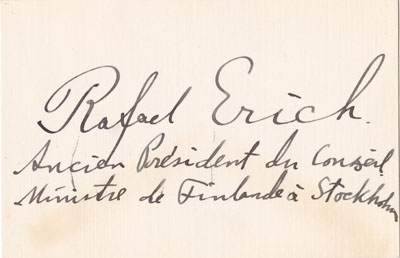 Rafael Erich.
Ancien Président du Conseil
Ministre de Finlande à Stockholm